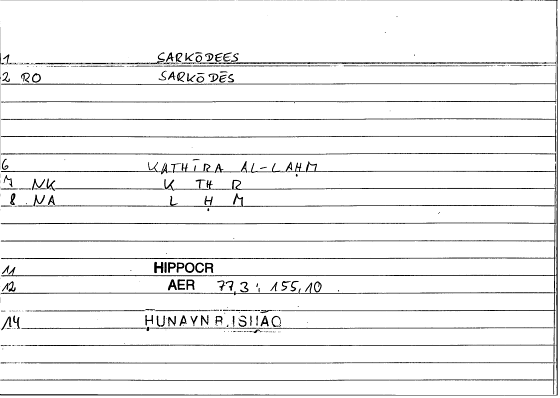 1 SARKŌDEES
2 RO SARKŌDĒS
6 KATHĪRA AL-LAḤM
7 NK K TH R
8 NA L Ḥ M
11 HIPPOCR
12 AER 77,3 ; 155,10
14 ḤUNAYN B. ISḤĀQ